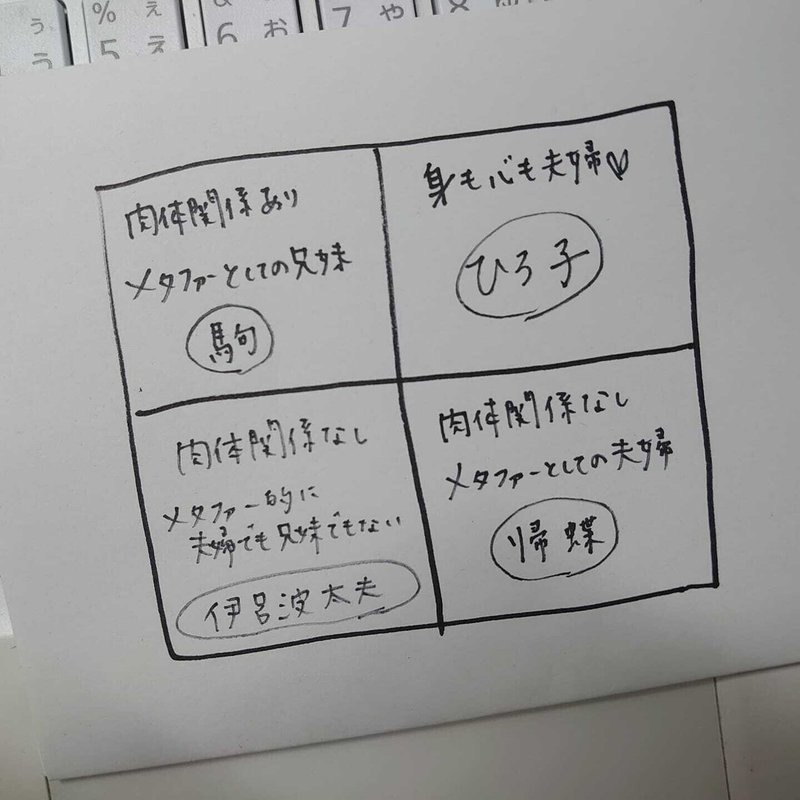 ぅ
う
%
5
ぇ
え
6
お
7
や
肉体関係あり
メタファーとしての兄妹
駒
身も心も夫婦♡
ひろ子
肉体関係なし
メタファー的に
夫婦でも兄妹でもない
伊呂波太夫
肉体関係なし
メタファーとしての夫婦
帰蝶